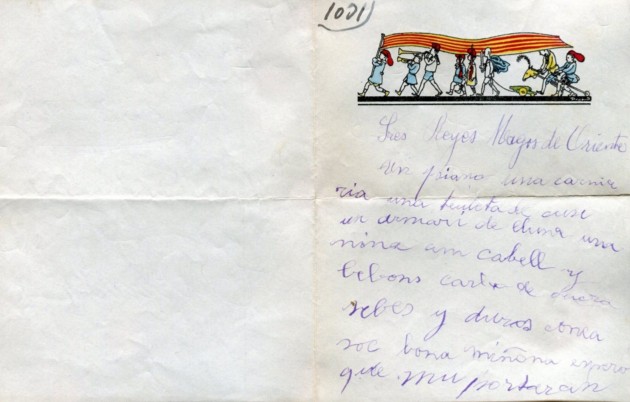 1001
Sres Reyes Magos de Oriente
Un piano una carnir
ria una de cusi
un armari de lluna una
nina am cabell y
bebons carta de
sebes y duros
soc bona miñona espero
que mu portaran